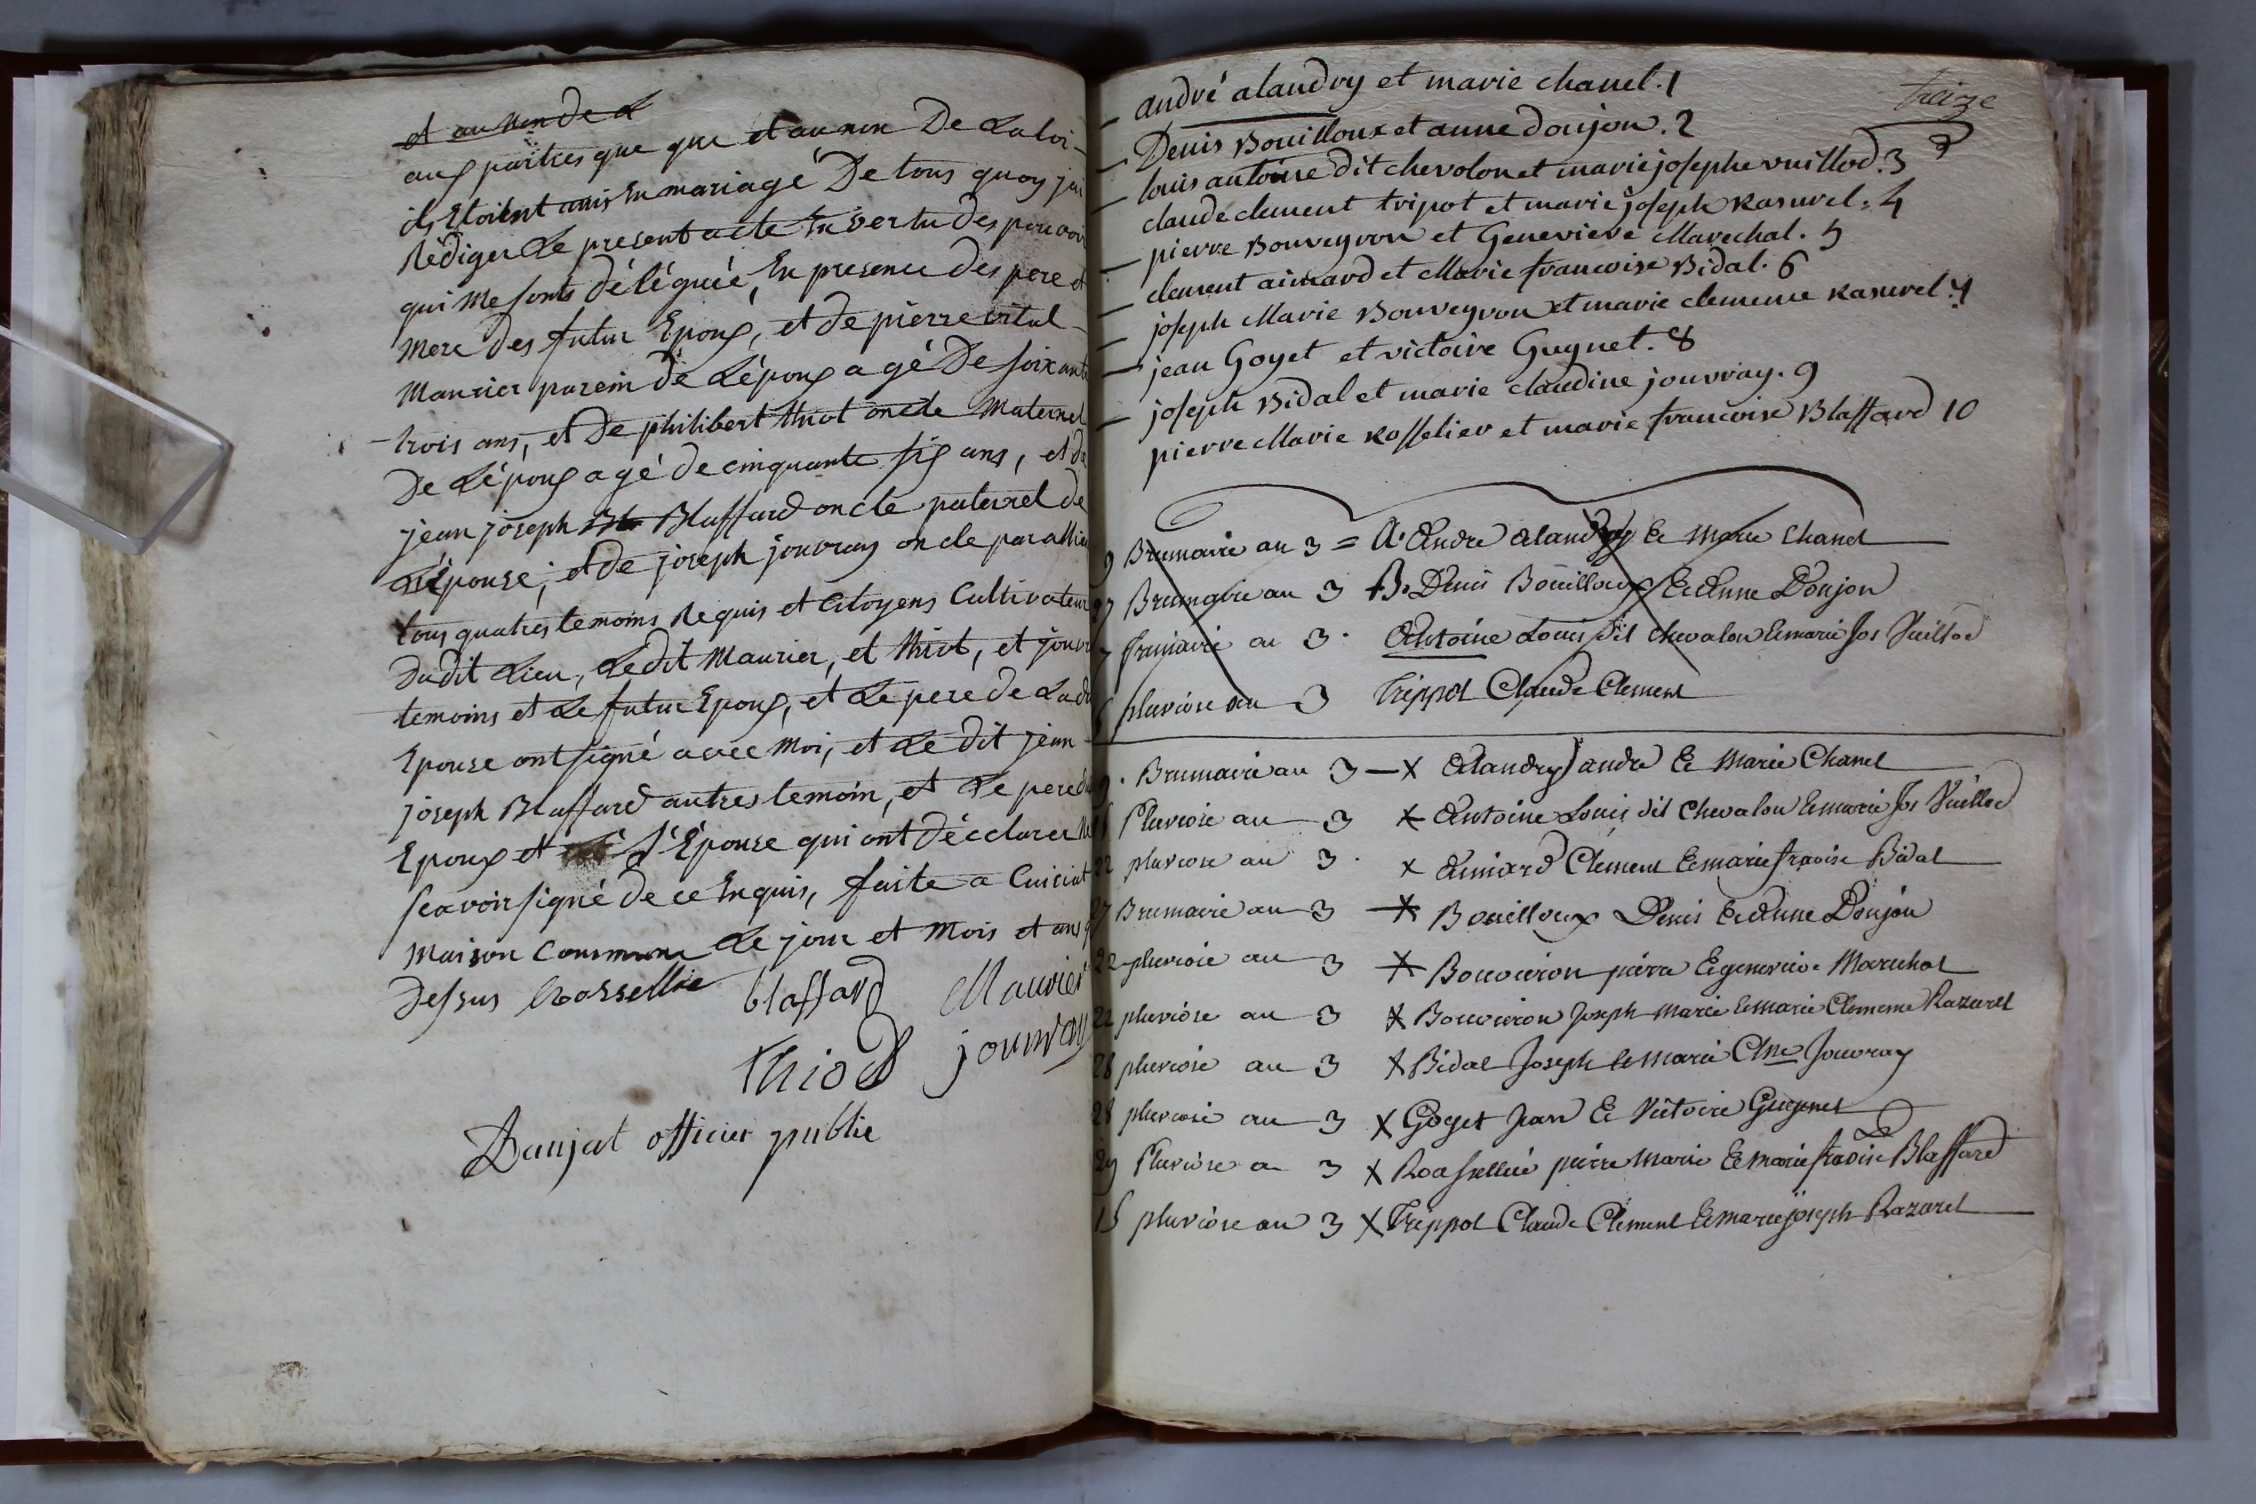 et au nom de l
aux parties que que et au nom De La loi
ils Etoient unis En mariage De tous quoy jai
Rédiger Le present acte En vertu des pouvoir
qui me sonts déléguéé, En presence des pere et
mere des futur Epoux, et de pierre vital
Maurier parein de L'époux agé De soixante
trois ans, et De philibert thiot oncle Maternel
De L'époux agé de cinquante six ans, et de
jean joseph Bla Blaffard oncle paternel de
L'épouse, et de joseph jouvray oncle par allie
tous quatres temoins Requis et Citoyens Cultivateur
Dudit Lieu, Ledit Maurier, et thiot, et jouvr
temoins et Le futur Epoux, et Le pere de Ladi
Epouse ont signé avec moi, et Le Dit jean
joseph Blaffard autres temoin, et Le pere du
Epoux et L'Epouse qui ont déclarer Ne
sçavoir signé de ce Enquis, faite a Cuiciat
maison Commune Le jour et mois et ans q
Dessus Rossellie blaffard Maurier
Thiod jouvray
Banjat officier public
treize
andré alandry et marie chanel. 1
Denis Bouilloux et anne donjon. 2
louis antoine dit chevolon et marie josephe vuillod. 3
claude clement tripot et marie joseph Rasurel. 4
pierre Bouveyron et Genevieve Marechal. 5
clement aimard et Marie francoise Bidal. 6
joseph Marie Bouveyron et marie clemence Rasurel. 7
jean Goyet et victoire Guynet. 8
joseph Bidal et marie claudine jouvray. 9
pierre Marie Rosselier et marie francoise Blaffard 10
9 Brumaire an 3 = A. Andre Alandry & Marie Chanel
27 Brumaire an 3 B. Denis Bouilloux & Anne Donjon
7 frimaire an 3 . Antoine Louis dit Chevalon & marie Jos Vuillod
pluviose an 3 Trippot Claude Clement
9. Brumaire an 3 — x Alandry andré & Marie Chanel
Pluviose an 3 x Antoine Louis dit Chevalon & marie Jos Vuillod
22 pluviose an 3 . x Aimard Clement & marie fraoise Bidal
27 Brumaire an 3 — x Bouilloux Denis & Anne Donjon
22 pluviose an 3 x Bouveiron piérre & genevieve Marechal
22 pluviose an 3 x Bouveiron Joseph Marie & Marie Clemence Razurel
28 pluviose an 3 x Bidal Joseph & Marie Cline Jouvray
28 pluviose an 3 x Goyet Jean & Victoire Guynet
29 Pluviose an 3 x Rossellié piérre Marie & Marie fraoise Blaffard
15 pluviose an 3 x Trippot Claude Clement & marie joseph Razurel